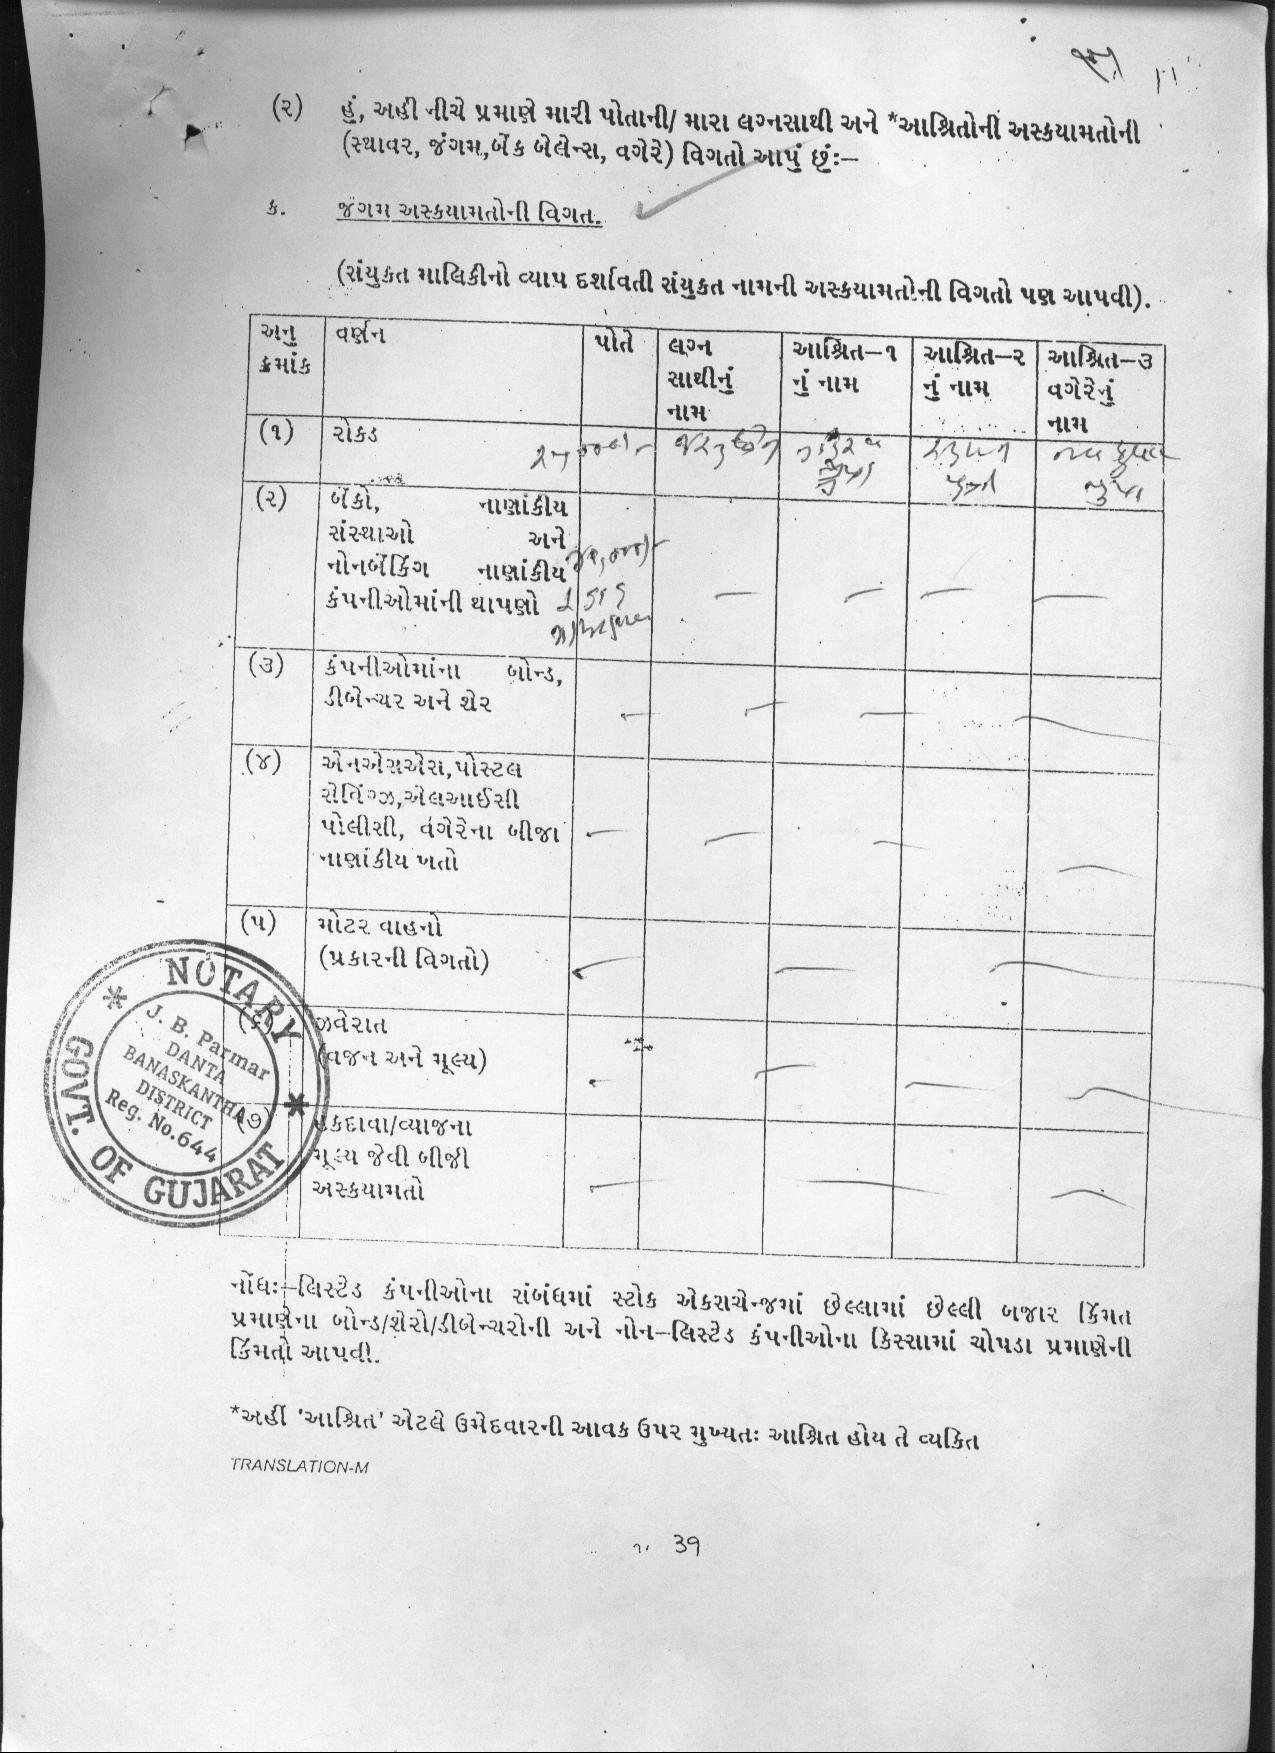 (૨) હું, અહીં નીચે પ્રમાણે મારી પોતાની/ મારા લગ્નસાથી અને *આશ્રિતોની અસ્કયામતોની
(સ્થાવર, જંગમ,બેંક બેલેન્સ, વગેરે) વિગતો આપું છું:–
ક. જંગમ અસ્કયામતોની વિગત.
(સંયુકત માલિકીનો વ્યાપ દર્શાવતી સંયુકત નામની અસ્કયામતોની વિગતો પણ આપવી).
અનુ ક્રમાંક
વર્ણન
પોતે
લગ્ન સાથીનું નામ
આશ્રિત–૧ નું નામ
આશ્રિત–૨ નું નામ
આશ્રિત–૩ વગેરેનું નામ
(૧) રોકડ
(૨) બેંકો, નાણાંકીય
સંસ્થાઓ અને
નોનબેંકિંગ નાણાંકીય
કંપનીઓમાંની થાપણો
(૩) કંપનીઓમાંના બોન્ડ,
ડીબેન્ચર અને શેર
(૪) એનએસએસ,પોસ્ટલ
સેવિંગ્ઝ,એલઆઈસી
પોલીસી, વગેરેના બીજા
નાણાંકીય ખતો
(૫) મોટર વાહનો
(પ્રકારની વિગતો)
(૬) ઝવેરાત
(વજન અને મૂલ્ય)
(૭) હકદાવા/વ્યાજના
મૂલ્ય જેવી બીજી
અસ્કયામતો
NOTARY
GOVT. OF GUJARAT
J. B. Parmar
DANTA
BANASKANTHA
DISTRICT
Reg. No.644
નોંધઃ–લિસ્ટેડ કંપનીઓના સંબંધમાં સ્ટોક એકસચેન્જમાં છેલ્લામાં છેલ્લી બજાર કિંમત
પ્રમાણેના બોન્ડ/શેરો/ડીબેન્ચરોની અને નોન–લિસ્ટેડ કંપનીઓના કિસ્સામાં ચોપડા પ્રમાણેની
કિંમતો આપવી.
*અહીં 'આશ્રિત' એટલે ઉમેદવારની આવક ઉપર મુખ્યતઃ આશ્રિત હોય તે વ્યકિત
TRANSLATION-M
39